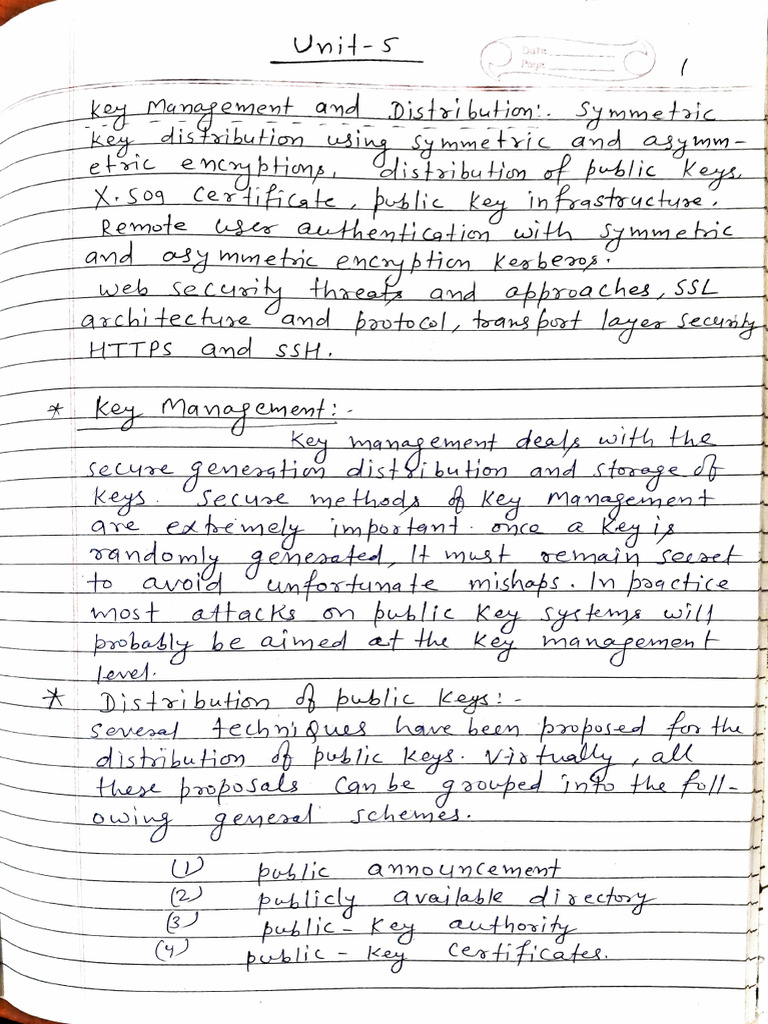 Unit-5
Date
Page
1
Key Management and Distribution:. Symmetric
Key distribution using symmetric and asymm-
etric encryptions, distribution of public Keys,
X.509 certificate, public key infrastructure.
Remote user authentication with symmetric
and asymmetric encryption Kerberos.
web security threats and approaches, SSL
architecture and protocol, transport layer security
HTTPS and SSH.
* Key Management:-
Key management deals with the
secure generation distribution and storage of
keys. Secure methods of Key Management
are extremely important. once a Key is
randomly generated, It must remain secret
to avoid unfortunate mishaps. In practice
most attacks on public Key systems will
probably be aimed at the Key management
level.
* Distribution of public Keys:-
Several techniques have been proposed for the
distribution of public Keys. Virtually, all
these proposals can be grouped into the foll-
owing general schemes.
(1) public announcement
(2) publicly available directory
(3) public-Key authority
(4) public-Key certificates.